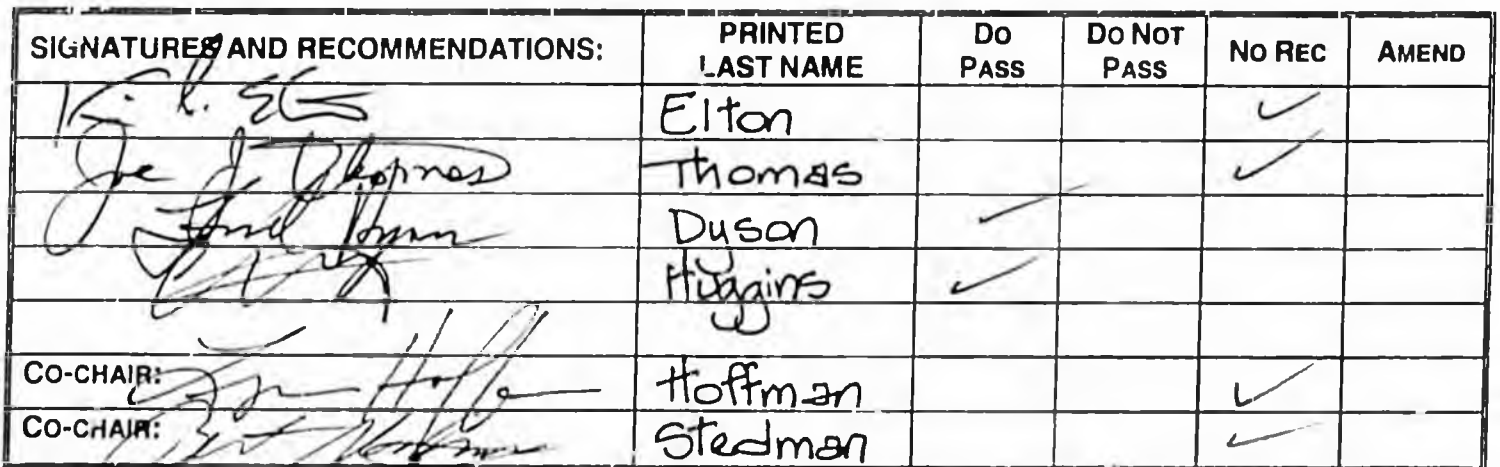 SIGNATURES AND RECOMMENDATIONS: PRINTED LAST NAME DO PASS DO NOT PASS NO REC AMEND
Elton ✓
Joe J Thomas Thomas ✓
Dyson ✓
Huggins ✓
CO-CHAIR: Hoffman ✓
CO-CHAIR: Stedman ✓